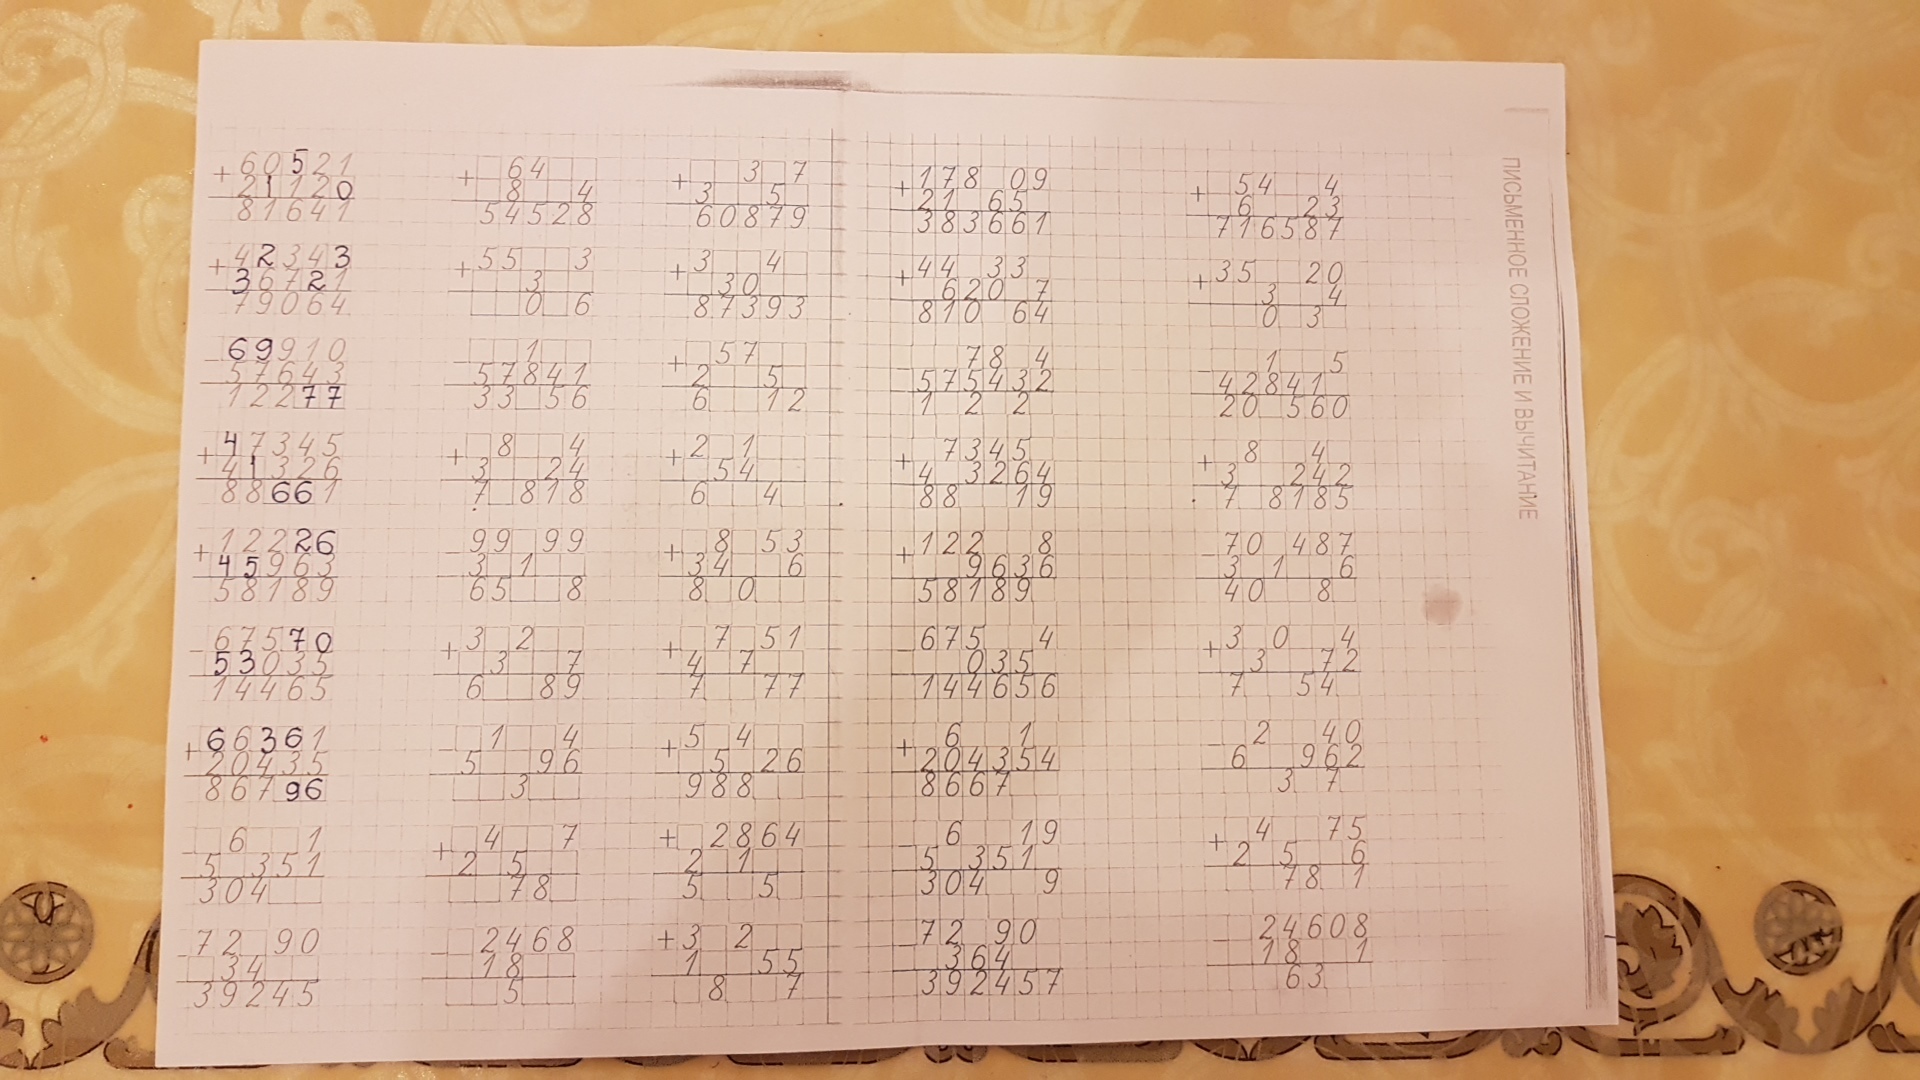 + 60521 + 64 + 3 7 + 178 09 + 54 4
21120 8 4 3 5 21 65 6 23
81641 54528 60879 383661 716587
+ 42343 + 55 3 + 3 4 + 44 33 + 35 20
36721 3 30 620 7 3 4
79064 0 6 87393 810 64 0 3
- 69910 - 1 + 57 - 78 4 - 1 5
57643 57841 2 5 575432 42841
12277 33 56 6 12 1 2 2 20 560
+ 47345 + 8 4 + 2 1 + 7345 + 8 4
41326 3 24 54 4 3264 3 242
88661 7 818 6 4 88 19 7 8185
+ 12226 - 99 99 + 8 53 + 122 8 - 70 487
45963 3 1 34 6 9636 3 1 6
58189 65 8 8 0 58189 40 8
- 67570 + 3 2 + 7 51 - 675 4 + 3 0 4
53035 3 7 4 7 035 3 72
14465 6 89 7 77 144656 7 54
+ 66361 - 1 4 + 5 4 + 6 1 - 2 40
20435 5 96 5 26 204354 6 962
86796 3 988 8667 3 7
- 6 1 + 4 7 + 2864 - 6 19 + 4 75
5 351 2 5 2 1 5 351 2 5 6
304 78 5 5 304 9 78 1
- 72 90 - 2468 + 3 2 - 72 90 - 24608
34 18 1 55 364 18 1
39245 5 8 7 392457 63
ПИСЬМЕННОЕ СЛОЖЕНИЕ И ВЫЧИТАНИЕ